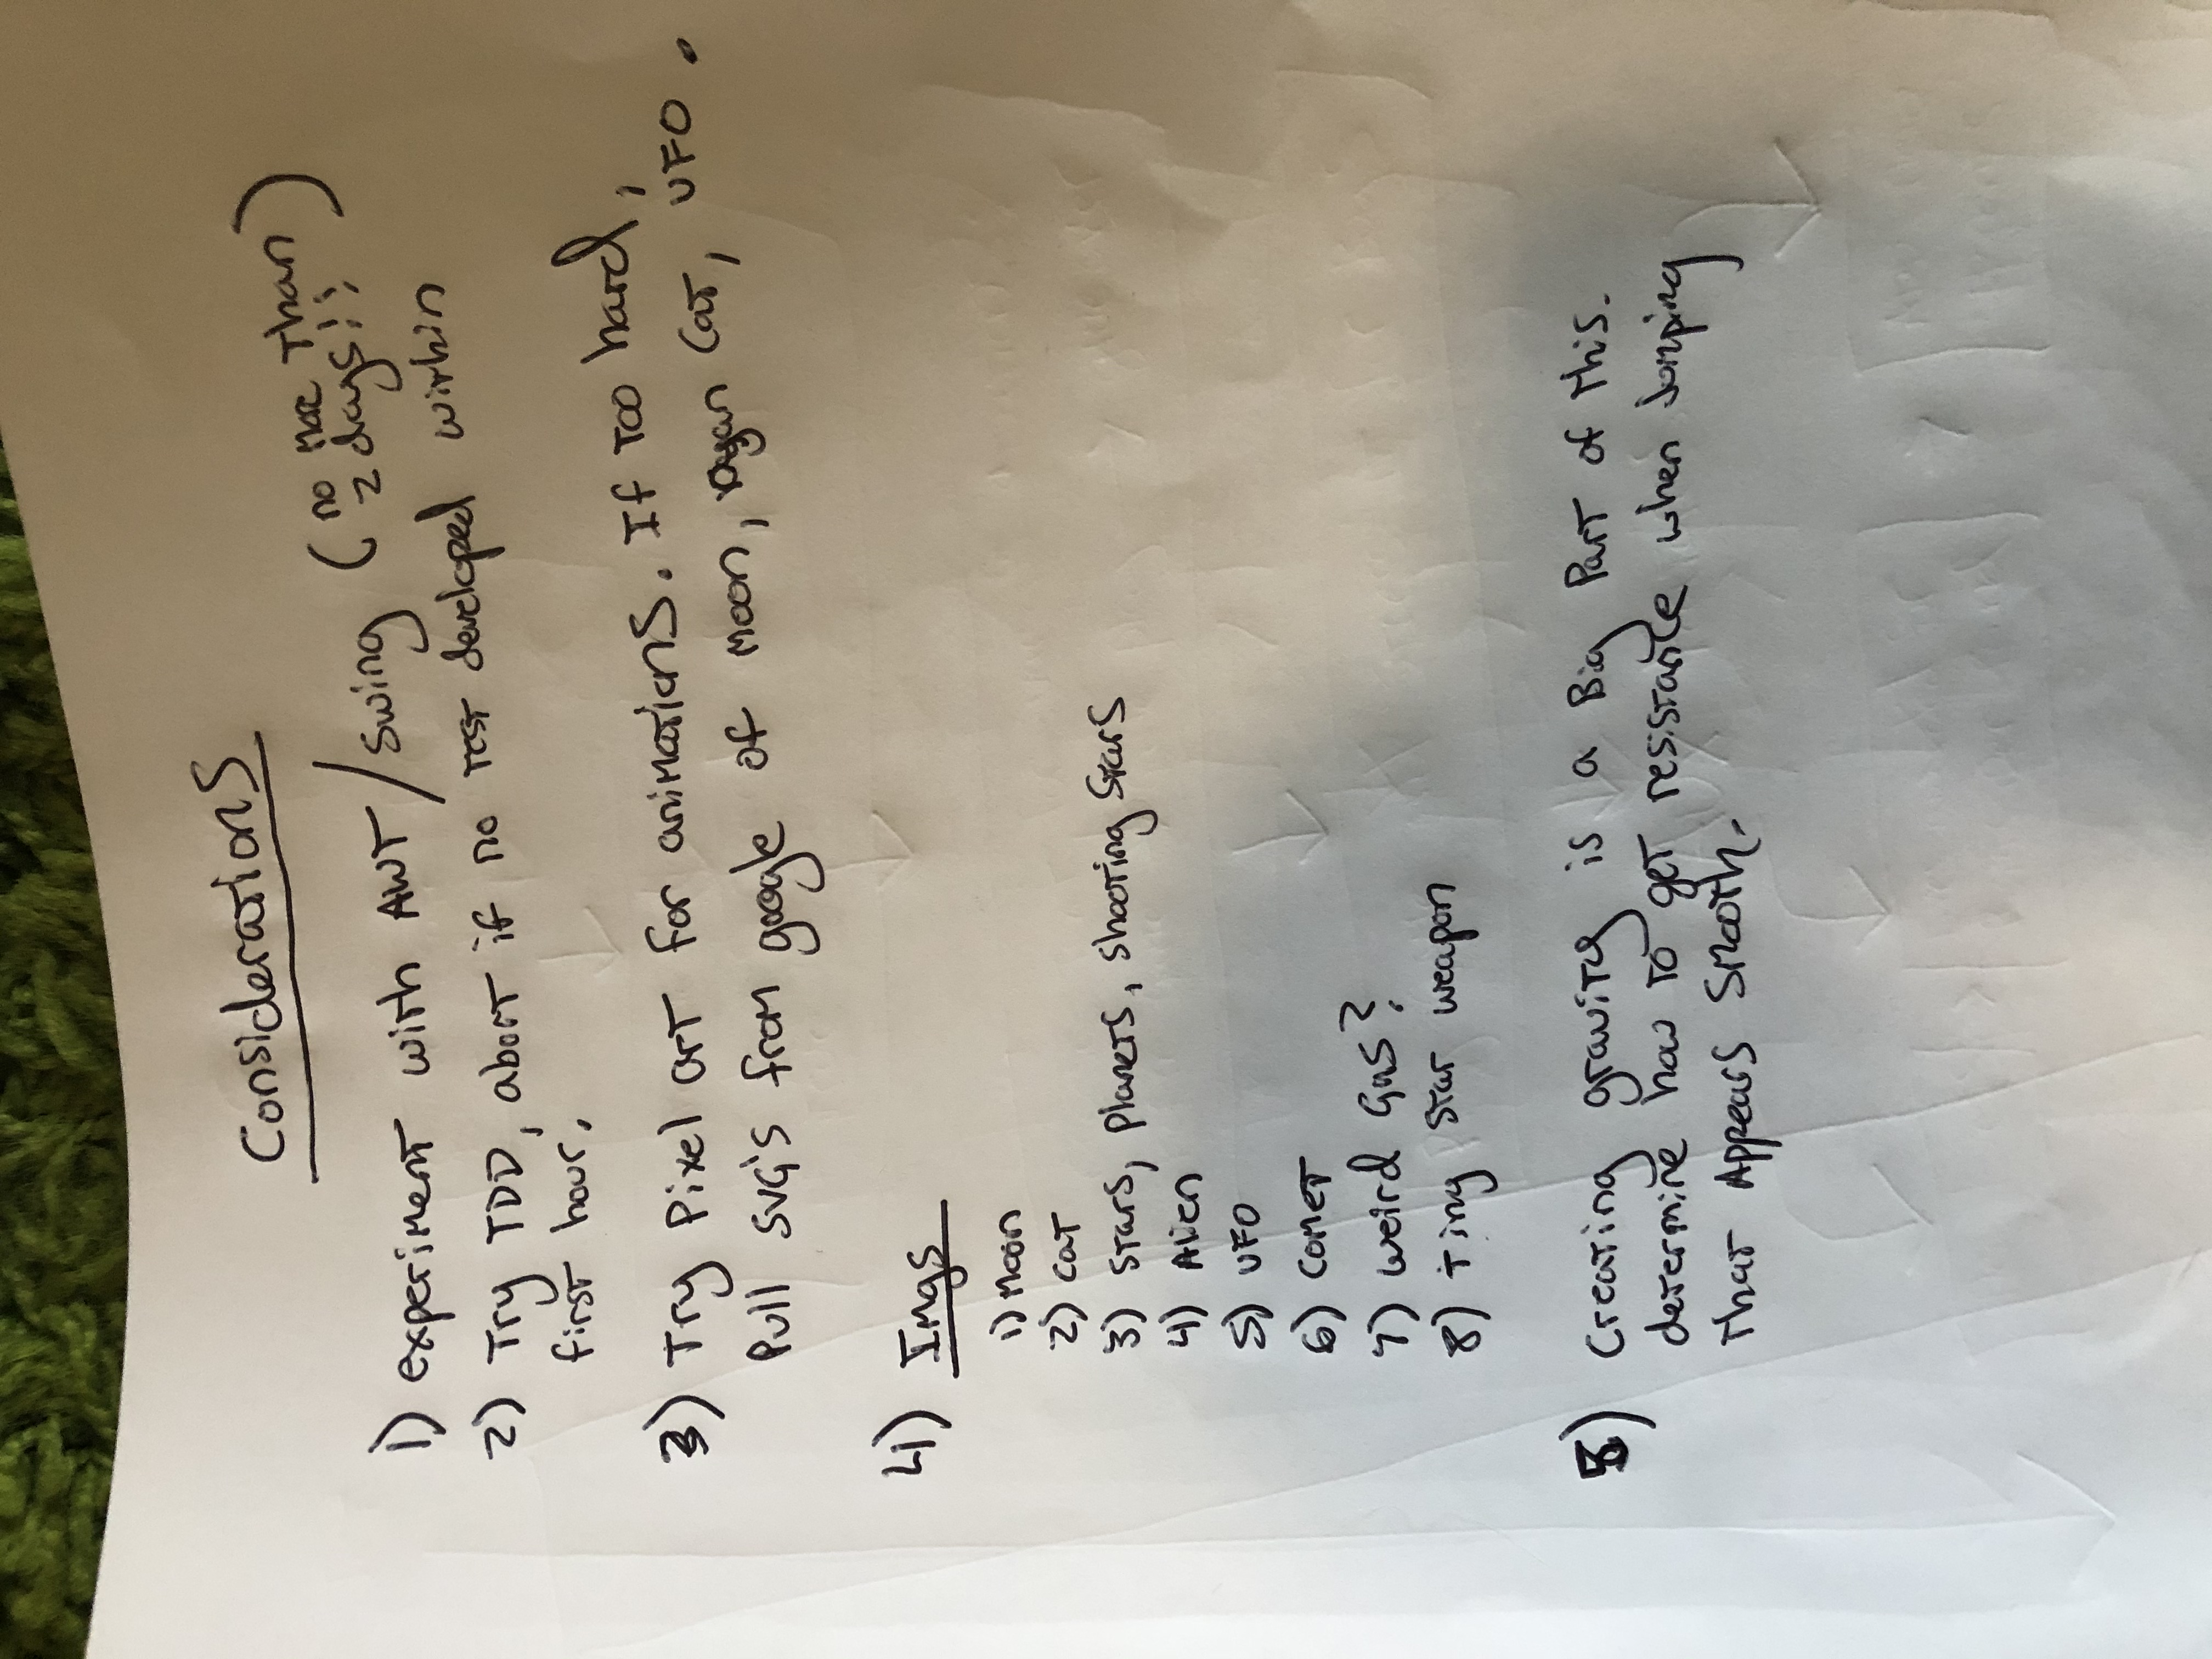 Considerations
1) experiment with AWT/Swing (no more than 2 days!!)
2) Try TDD, abort if no test developed within
first hour.
3) Try Pixel art for animations. If too hard,
Pull SVG's from google of moon, nyan cat, UFO.
4) Imgs
1) Moon
2) cat
3) stars, planets, shooting stars
4) Alien
5) UFO
6) comet
7) weird Gas?
8) tiny star weapon
5) Creating gravity is a Big Part of this.
determine how to get resistance when jumping
that Appears smooth.